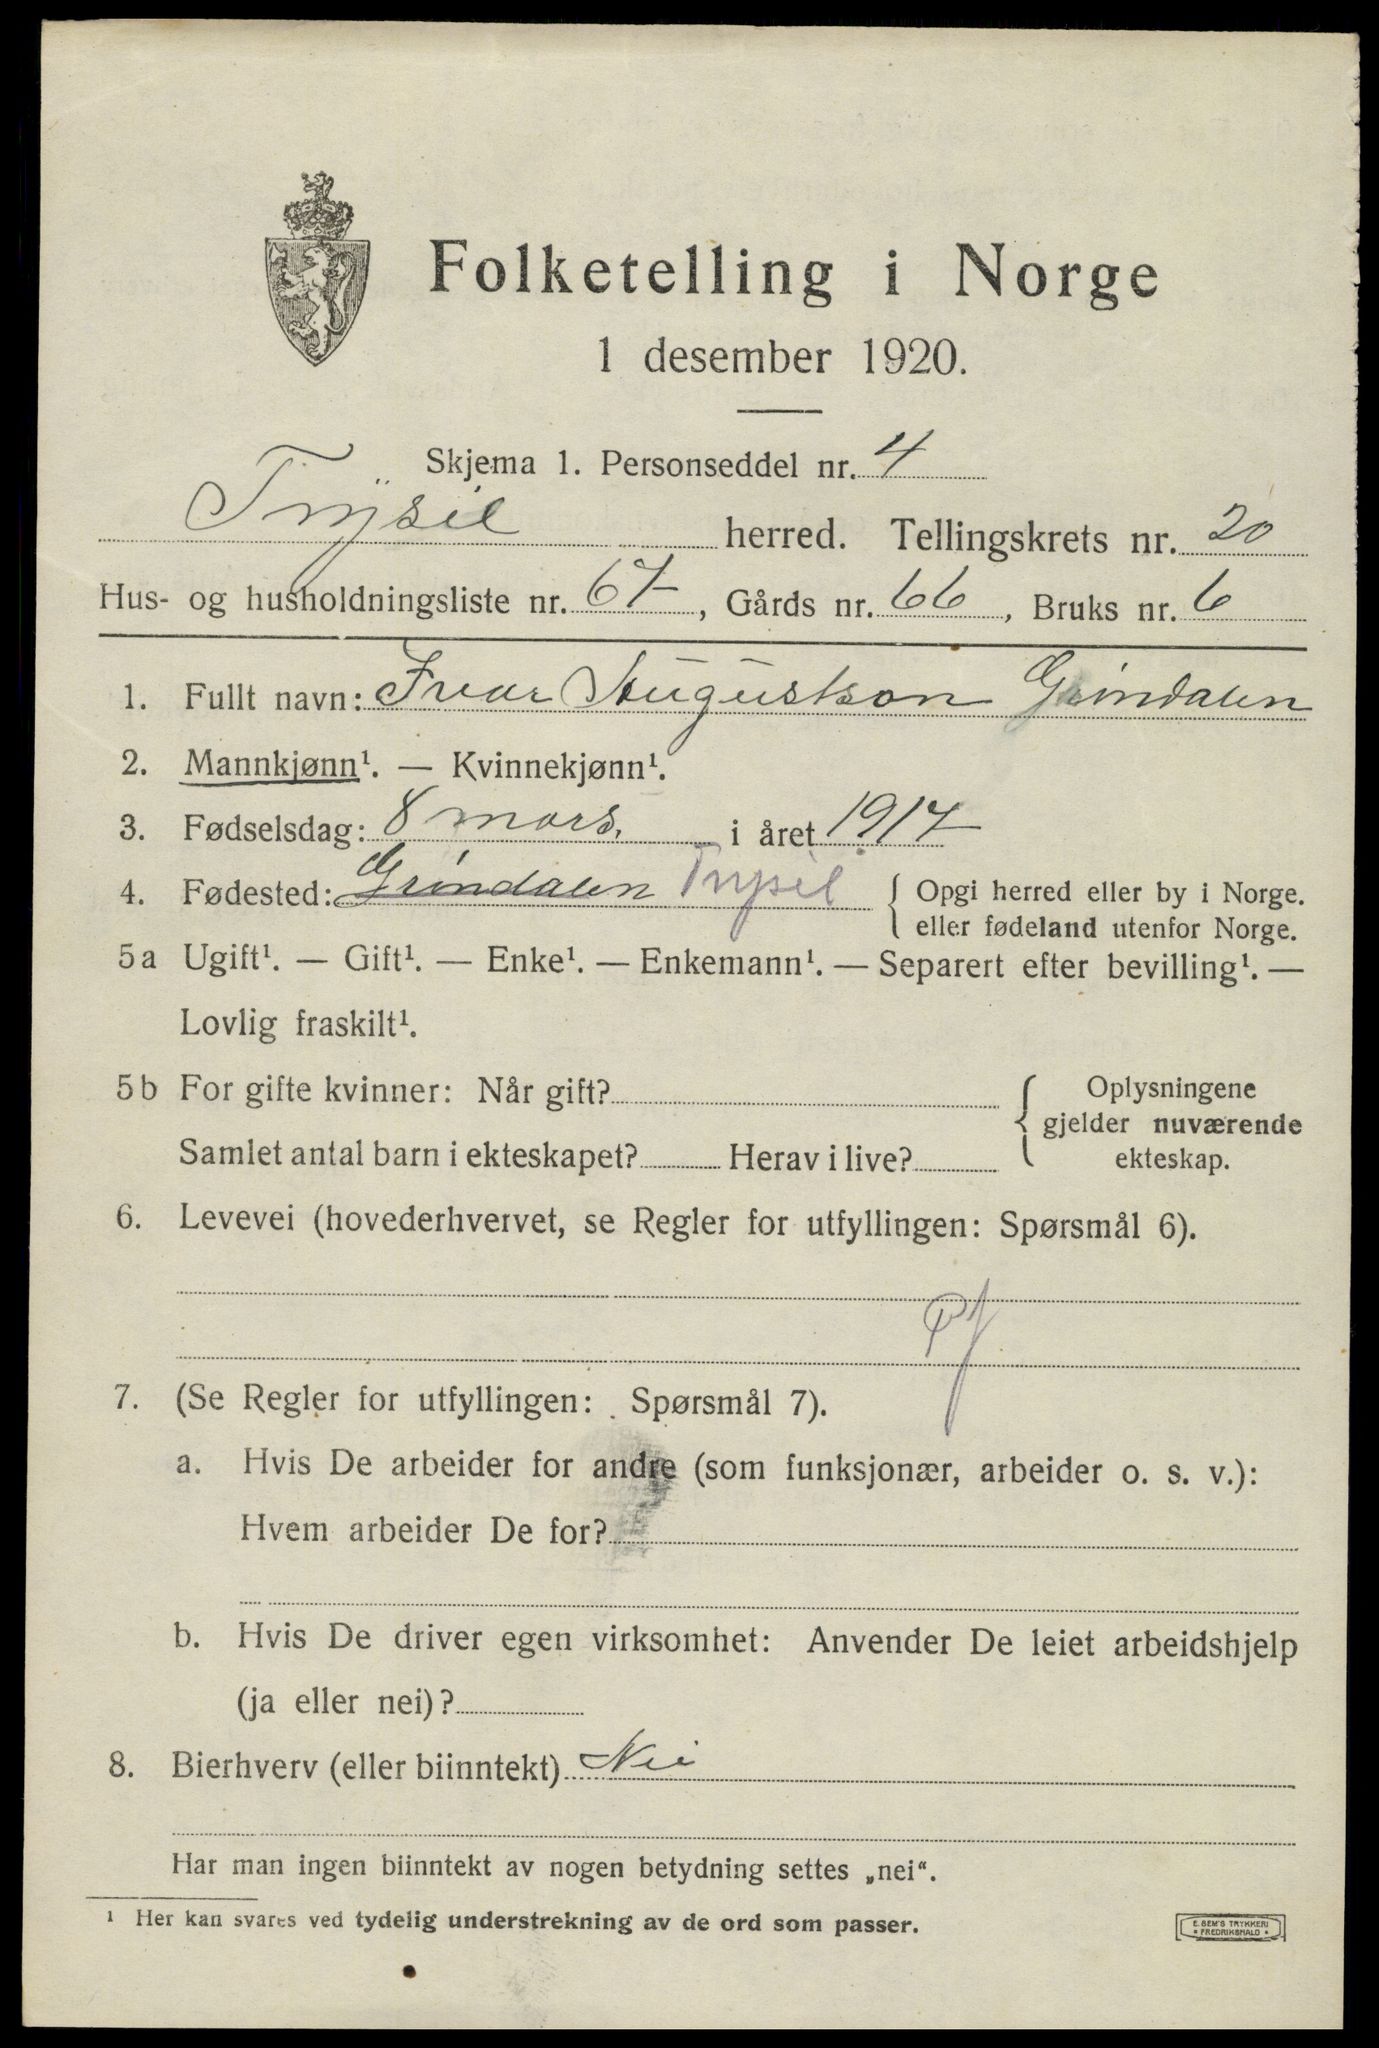 Folketelling i Norge
1 desember 1920.
Skjema 1. Personseddel nr. 4
Trysil herred. Tellingskrets nr. 20
Hus- og husholdningsliste nr. 67, Gårds nr. 66, Bruks nr. 6
1. Fullt navn: Ivar Augustson Gröndalen
2. Mannkjønn¹. — Kvinnekjønn¹.
3. Fødselsdag: 8 mars. i året 1917
4. Fødested: Gröndalen Trysil { Opgi herred eller by i Norge.
eller fødeland utenfor Norge.
5a Ugift¹. — Gift¹. — Enke¹. — Enkemann¹. — Separert efter bevilling¹. —
Lovlig fraskilt¹.
5b For gifte kvinner: Når gift? { Oplysningene
gjelder nuværende
Samlet antal barn i ekteskapet? Herav i live? ekteskap.
6. Levevei (hovederhvervet, se Regler for utfyllingen: Spørsmål 6).
Pf
7. (Se Regler for utfyllingen: Spørsmål 7).
a. Hvis De arbeider for andre (som funksjonær, arbeider o. s. v.):
Hvem arbeider De for?
b. Hvis De driver egen virksomhet: Anvender De leiet arbeidshjelp
(ja eller nei)?
8. Bierhverv (eller biinntekt) Nei
Har man ingen biinntekt av nogen betydning settes „nei“.
¹ Her kan svares ved tydelig understrekning av de ord som passer.
E. SEM'S TRYKKERI
• FREDRIKSHALD •